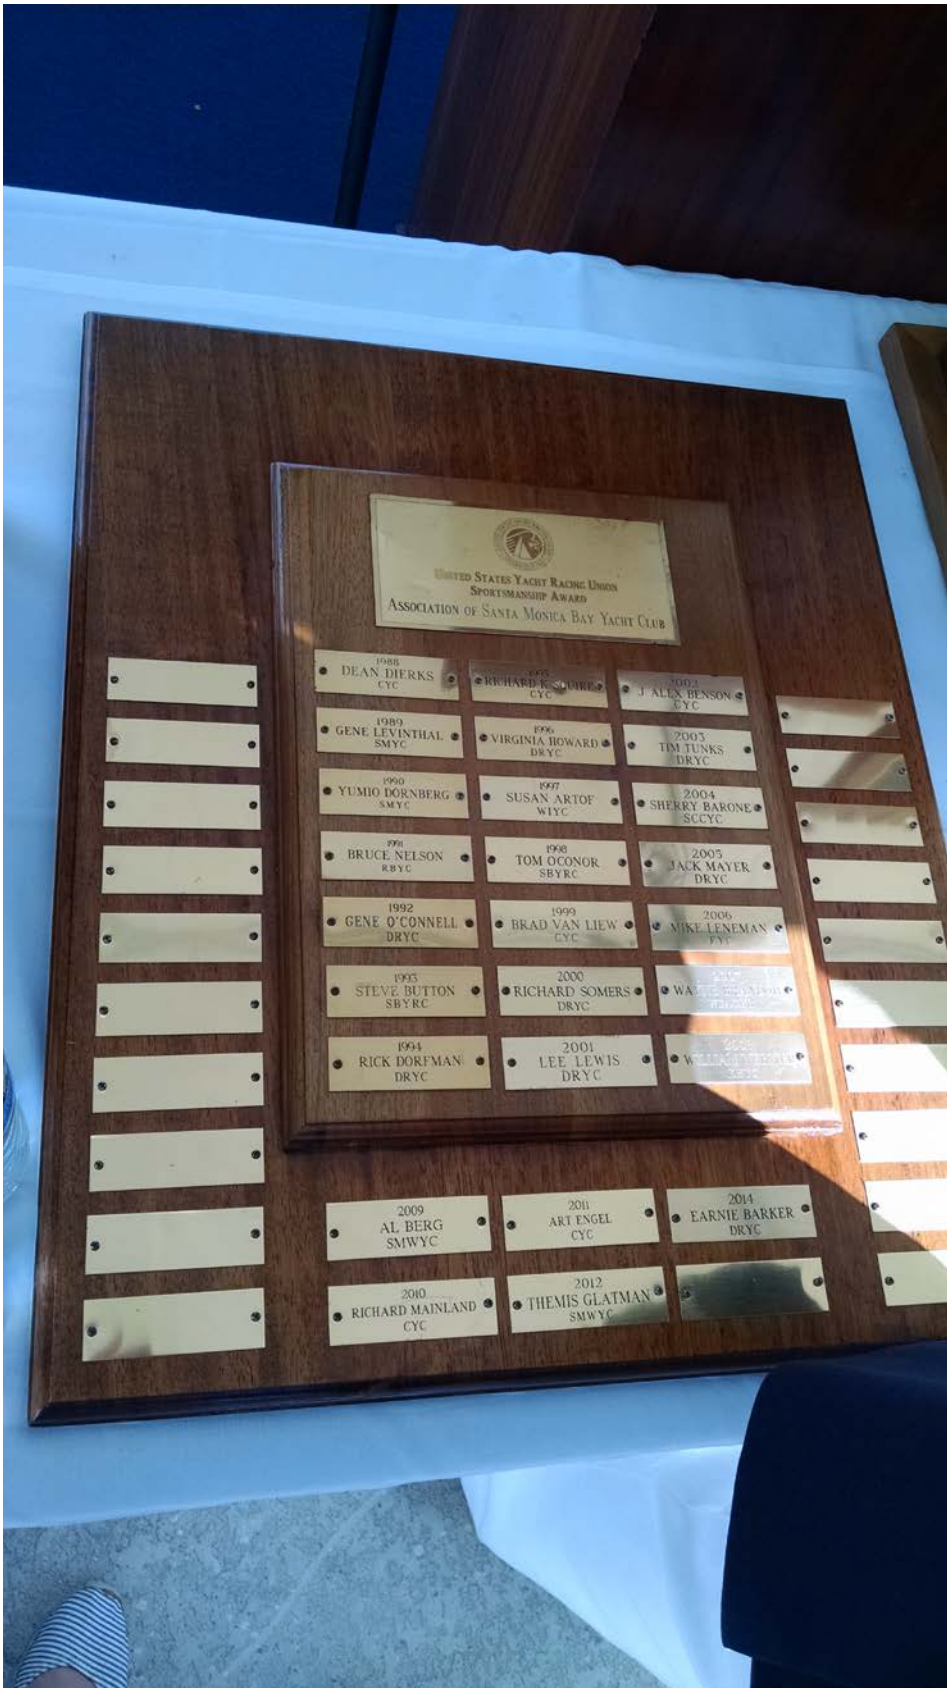 UNITED STATES YACHT RACING UNION
SPORTSMANSHIP AWARD
ASSOCIATION OF SANTA MONICA BAY YACHT CLUB
1988
DEAN DIERKS
CYC
1989
GENE LEVINTHAL
SMYC
1990
YUMIO DORNBERG
SMYC
1991
BRUCE NELSON
RBYC
1992
GENE O'CONNELL
DRYC
1993
STEVE BUTTON
SBYRC
1994
RICK DORFMAN
DRYC
1995
RICHARD K SQUIRE
CYC
1996
VIRGINIA HOWARD
DRYC
1997
SUSAN ARTOF
WIYC
1998
TOM OCONOR
SBYRC
1999
BRAD VAN LIEW
CYC
2000
RICHARD SOMERS
DRYC
2001
LEE LEWIS
DRYC
2002
J ALEX BENSON
CYC
2003
TIM TUNKS
DRYC
2004
SHERRY BARONE
SCCYC
2005
JACK MAYER
DRYC
2006
MIKE LENEMAN
2007
WILLIAM
2009
AL BERG
SMWYC
2010
RICHARD MAINLAND
CYC
2011
ART ENGEL
CYC
2012
THEMIS GLATMAN
SMWYC
2014
EARNIE BARKER
DRYC